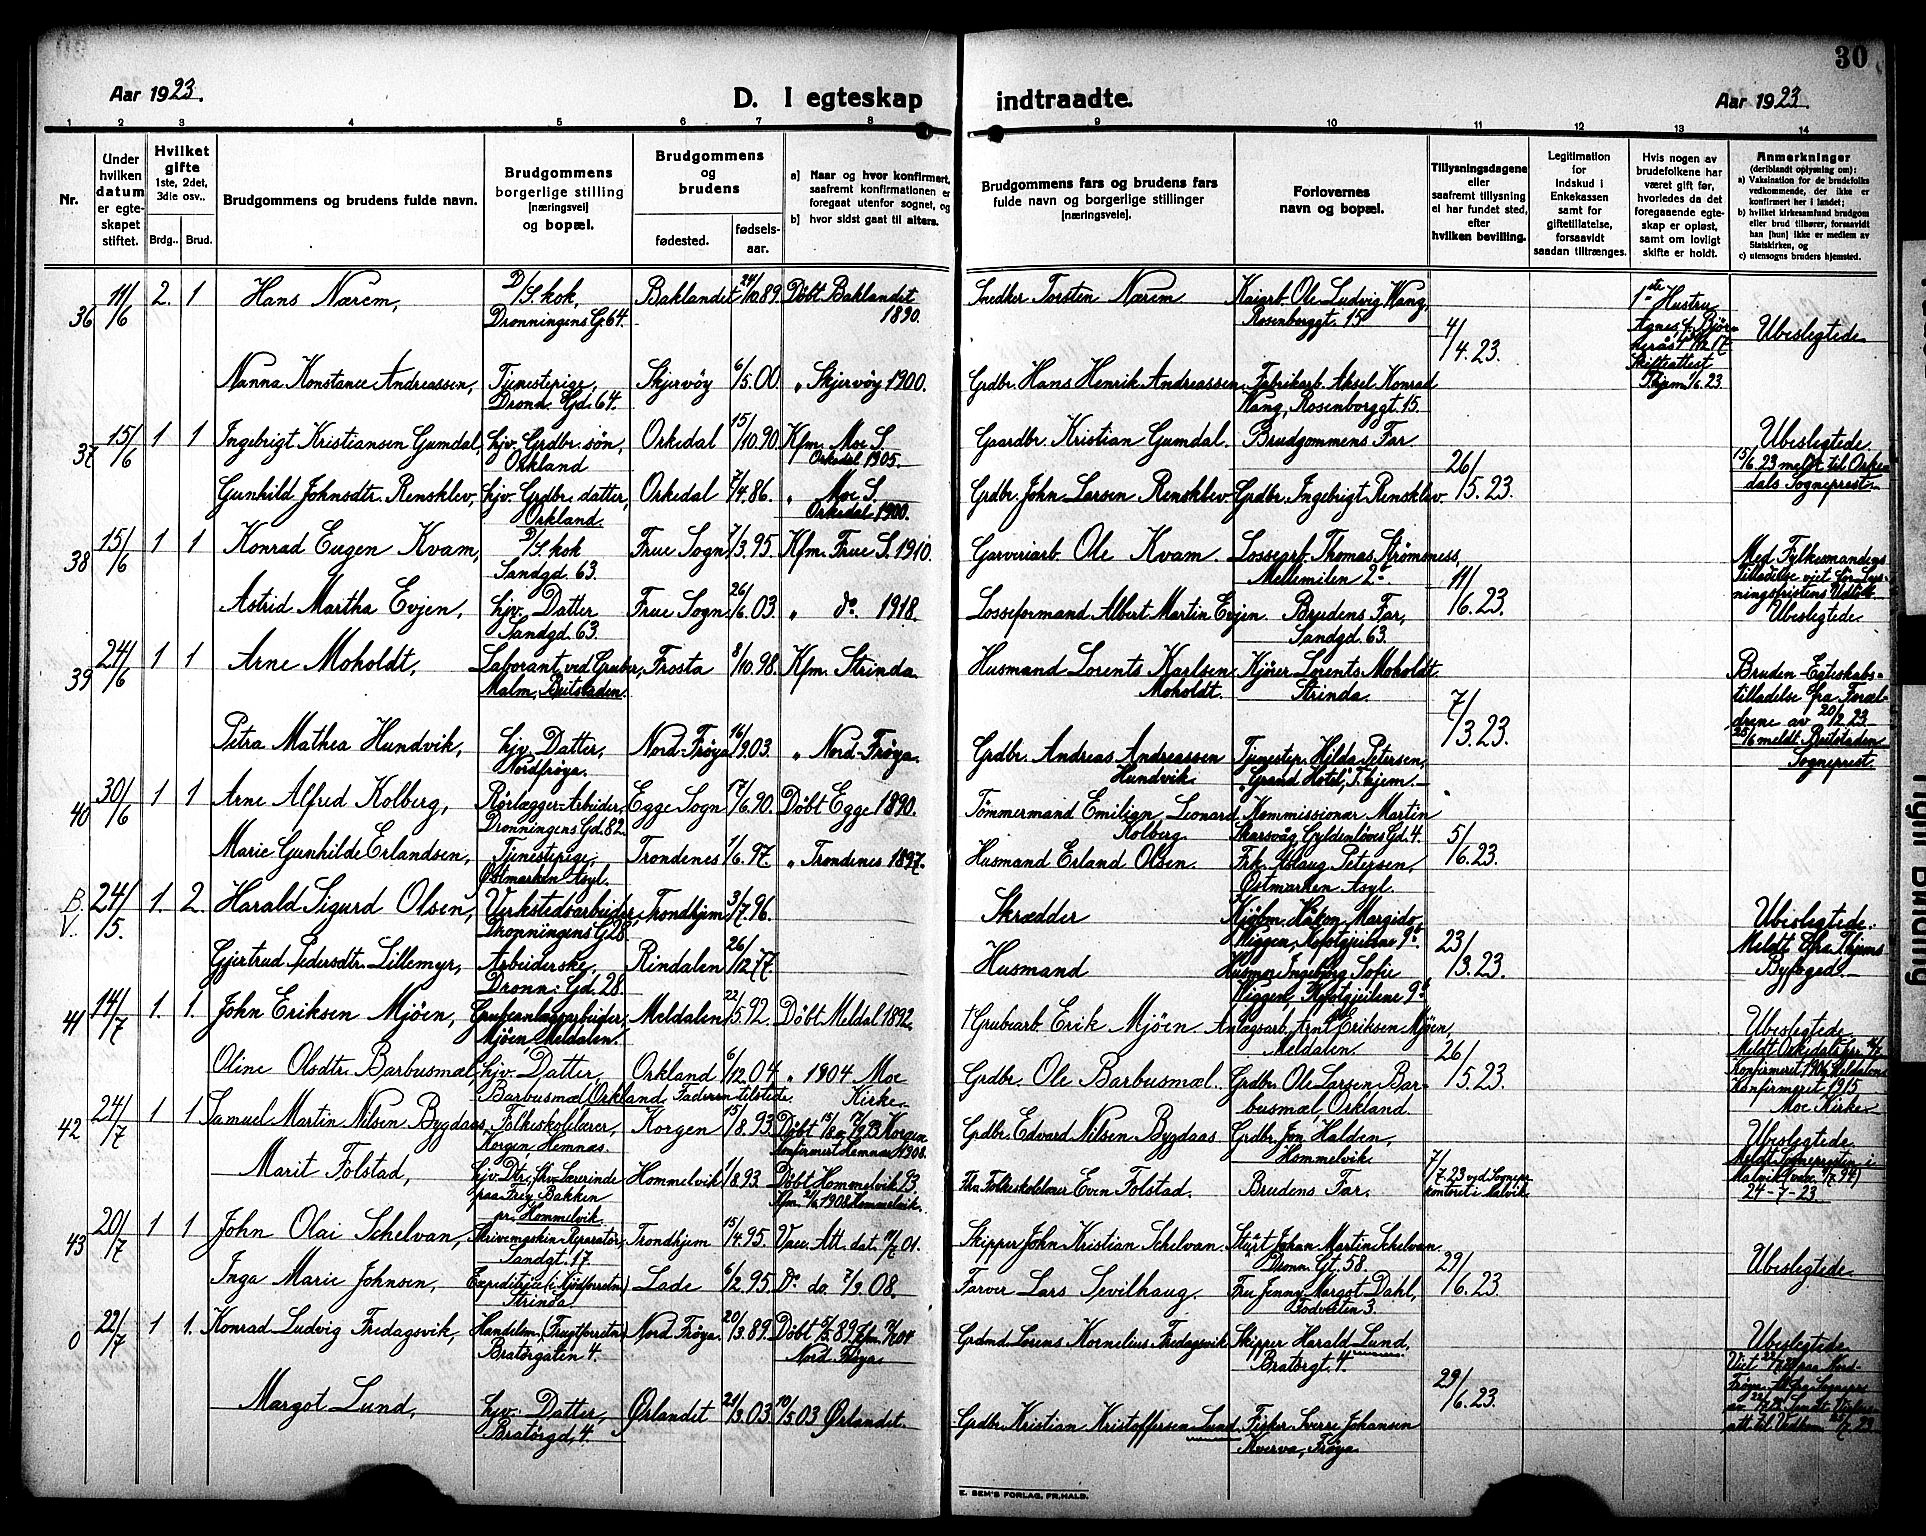 30
Aar 1923.
D. I egteskap indtraadte.
Aar 1923.
1 2 3 4 5 6 7 8 9 10 11 12 13 14
Nr.
Under hvilken datum er egteskapet stiftet.
Hvilket gifte 1ste, 2det, 3die osv..
Brdg.. Brud.
Brudgommens og brudens fulde navn.
Brudgommens borgerlige stilling [næringsvei] og bopæl.
Brudgommens og brudens
fødested.
fødselsaar.
a) Naar og hvor konfirmert, saafremt konfirmationen er foregaat utenfor sognet, og
b) hvor sidst gaat til alters.
Brudgommens fars og brudens fars fulde navn og borgerlige stillinger [næringsveie].
Forlovernes navn og bopæl.
Tillysningsdagene eller saafremt tillysning ei har fundet sted, efter hvilken bevilling.
Legitimation for Indskud i Enkekassen samt for giftetillatelse, forsaavidt saadan tiltrænges.
Hvis nogen av brudefolkene har været gift før, hvorledes da det foregaaende egteskap er opløst, samt om lovligt skifte er holdt.
Anmerkninger (deriblandt oplysning om):
a) Vaksination for de brudefolks vedkommende, der ikke er konfirmert her i landet;
b) hvilket kirkesamfund brudgom eller brud tilhører, forsaavidt han [hun] ikke er medlem av Statskirken, og
c) utensogns bruders hjemsted.
36 11/6 2. 1 Hans Nærem, D/S. kok, Dronningens G. 64. Baklandet 24/10.89. Døbt Baklandet 1890. Snedker Torsten Nærem Kaiarb. Ole Ludvig Wang, Rosenborggt. 15 4/4.23. 1ste Hustru Agnes f. Bjørnerås † 17 Skifteattest Thjem 1/6 23 Ubeslegtede
Nanna Konstance Andreassen, Tjenestepige, Dronn. Gd. 64. Skjervøy 6/5.00. " Skjervøy 1900. Grdbr. Hans Henrik Andreassen Fabrikarb. Aksel Konrad Wang, Rosenborggt. 15.
37 15/6 1 1 Ingebrigt Kristiansen Gumdal, hjv. Grdbr. søn, Orkland Orkedal 15/10.90. Kfm. Moe S. Orkedal 1905. Gaardbr. Kristian Gumdal. Brudgommens Far 26/5.23. Ubeslegtede. 15/6 23 meldt til Orkedals Sogneprest
Gunhild Johnsdtr. Rensklev, hjv. Grdbr. datter, Orkland. Orkedal 7/4.86. " Moe S. Orkedal 1900. Grdbr. John Larsen Rensklev Grdbr. Ingebrigt Rensklev
38 15/6 1 1 Konrad Eugen Kvam, D/S. kok Sandgd. 63. Frue Sogn 7/3.95. Kfm. Frue S. 1910. Garveriarb. Ole Kvam. Lossearb. Thomas Strømsness, Mellemilen 2c 11/6.23. Med Fylkesmandens Tilladelse viet før Lysningsfristens Udløb. Ubeslegtede
Astrid Martha Evjen, hjv. Datter Sandgd. 63. Frue Sogn 26/6.03. " do. 1918. Losseformand Albert Martin Evjen Brudens Far, Sandgd. 63.
39 24/6 1 1 Arne Moholdt, Laborant ved Gruber, Malm, Beitstaden. Frosta 8/10.98. Kfm. Strinda. Husmand Lorents Karlsen Moholdt. Kjører Lorents Moholdt Strinda. 7/3.23. Bruden Egteskabstilladelse fra Forældrene av 20/2 23. 25/6 meldt Beitstaden Sogneprest
Petra Mathea Hundvik, hjv. Datter, Nordfrøya. Nord-Frøya 16/9.03. " Nord-Frøya. Grdbr. Andreas Andreassen Hundvik. Tjenestep. Hilda Petersen, "Grand Hotel", T.hjem.
40 30/6 1 1 Arne Alfred Kolberg, Rørlægger-Arbeider, Dronningens Gd. 82. Egge Sogn 17/6.90. Døbt Egge 1890. Tømmermand Emilian Leonard Kolberg Kommissionær Martin Skarsvåg, Gyldenløves Gd. 4. 5/6.23.
Marie Gunhilde Erlandsen, Tjenestepige, Østmarken Asyl. Trondenes 1/6.97. " Trondenes 1897. Husmand Erland Olsen. Frk. Aslaug Petersen, Østmarken Asyl.
B.V. 24/5. 1. 2. Harald Sigurd Olsen, Verkstedsarbeider, Dronningens G. 28 Trondhjem 3/7.96. Skrædder Kjøbm. Håkon Margido Wiggen, Kofstgjeilene 9b 23/3.23. Ubeslegtede. Meldt fra Thjems Byfoged.
Gjertrud Pedersdtr. Lillemyr, Arbeiderske, Dronn: Gd. 28. Rindalen 26/12.77. Husmand Husmor Ingebjørg Sofie Wiggen, Kofstgjeilene 9b
41 14/7 1. 1. John Eriksen Mjøen, Grubeanlægsarbeider, Mjøen, Meldalen. Meldalen 22/5.92. Døbt Meldal 1892. † Grubearb. Erik Mjøen Anlægsarb. Arnt Eriksen Mjøen, Meldalen. 26/5.23. Ubeslegtede. Meldt Orkedals Spr. Konfirmeret 1906 Meldalen Konfirmeret 1915 Moe Kirke
Oline Olsdtr. Barbusmæl, hjv. Datter, Barbusmæl, Orkland. Orkland 6/12.04. " 1904 Moe Kirke Faderen tilstede Grdbr. Ole Barbusmæl. Grdbr. Ole Larsen Barbusmæl, Orkland.
42 24/7 1 1 Samuel Martin Nilsen Bygdaas, Folkeskolelærer, Korgen, Hemnæs. Korgen 15/8.93. Døbt Korgen Konfirmert Hemnæs 1908. Grdbr. Edvard Nilsen Bygdaas Grdbr. Jon Halden, Hommelvik. 7/7.23 ved Sognepr. kontoret i Malvik Ubeslegtede Meldt Sognepresten i Malvik 24-7-23
Marit Folstad, hjv. Dtr. Lærerinde paa Frey Bakken pr. Hommelvik. Hommelvik 1/8.93. Døbt Hommelvik 93 Kfm. 1908 Hommelvik. Fhv. Folkeskolelærer Even Folstad. Brudens Far.
43 20/7 1 1 John Olai Schelvan, Skrivemaskin-Reparatør, Sandgt. 17. Trondhjem 15/4.95. Vacc. Att. dat. 01. Skipper John Kristian Schelvan. Styrt Johan Martin Schelvan Dronn. Gt. 58. 29/6.23. Ubeslegtede.
Inga Marie Johnsen, Expeditrice (i Kjøtforretn) Strinda Lade 6/2.95. Do. do. 7/9 08. Farver Lars Sevilhaug. Fru Jenny Margot Dahl, Fodveiten 3.
0 22/7 1 1. Konrad Ludvig Fredagsvik, Handelsm. (Frugtforretn.) Bratørgaten 4. Nord Frøya. 20/3.89. Døbt 89. Kfm. 04 Nord-Frøya Grdmd. Lorens Kornelius Fredagsvik Skipper Harald Lund, Bratørgt. 4. 29/6.23. Ubeslegtede. Viet paa Nord-Frøya.
Margot Lund, hjv. Datter, Bratørgd. 4. Ørlandet 21/3.03. 10/5 03 Ørlandet. Grdbr. Kristian Kristoffersen Lund. Fisker Sverre Johansen Kverva, Frøya.
E. SEM'S FORLAG, FR.HALD.